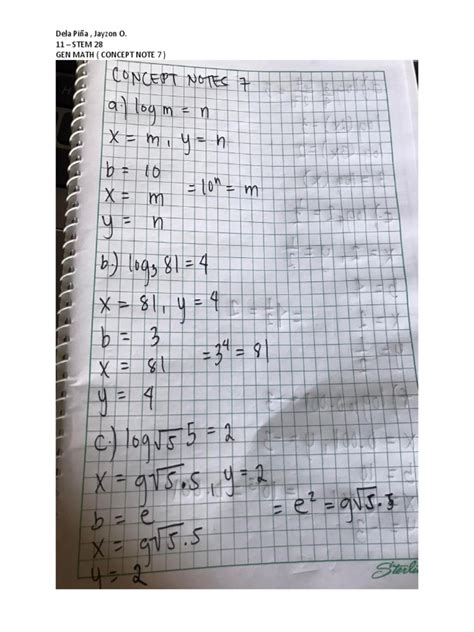 Dela Piña , Jayzon O.
11 – STEM 28
GEN MATH ( CONCEPT NOTE 7 )
CONCEPT NOTES 7
a.) log m = n
x = m , y = n
b = 10
x = m = 10ⁿ = m
y = n
b.) log₃ 81 = 4
x = 81, y = 4
b = 3
x = 81 = 3⁴ = 81
y = 4
c.) log√5 5 = 2
x = g√5 . 5 , y = 2
b = e = e² = g√5 . 5
x = g√5 . 5
y = 2